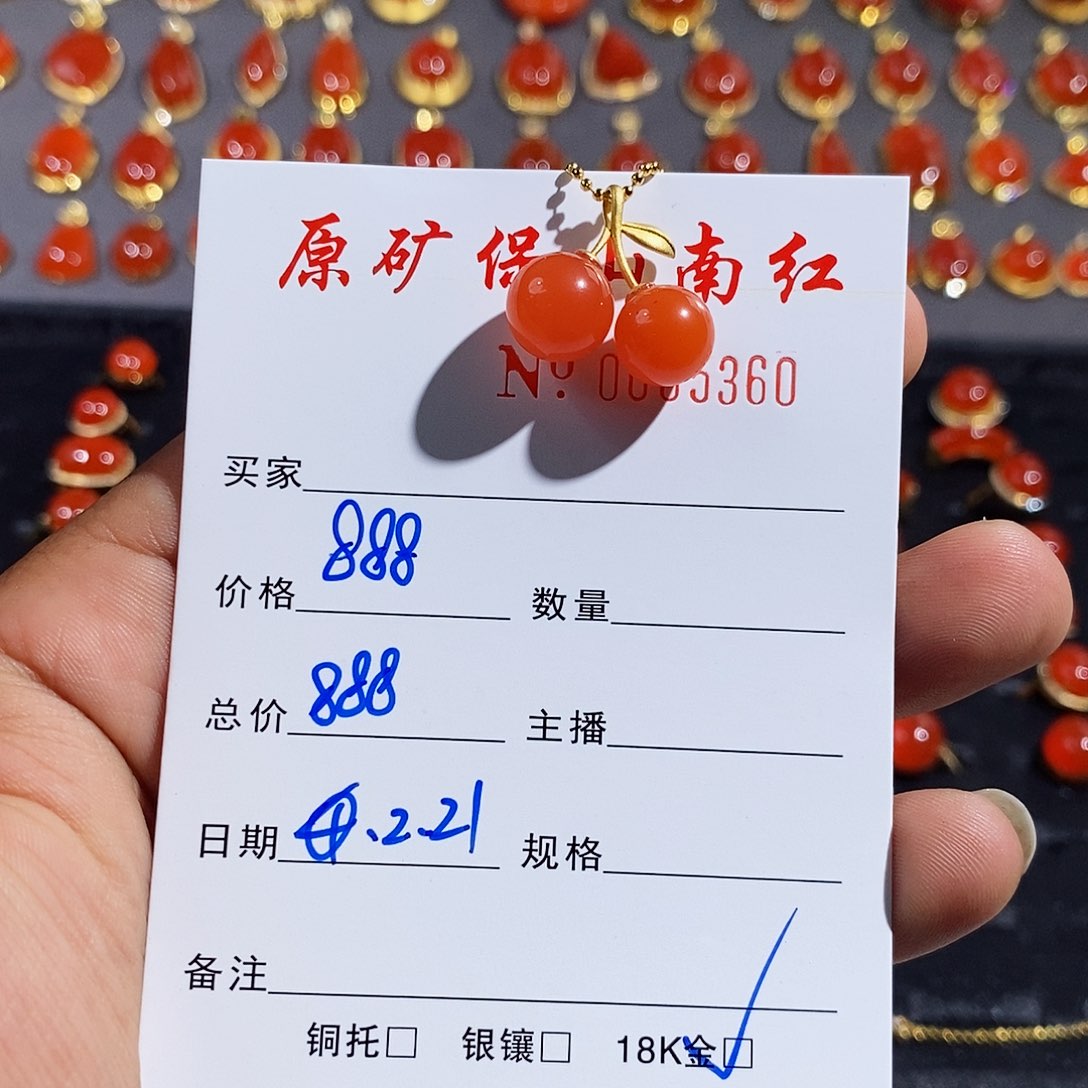 原矿保山南红
No. 0005360
买家
888
价格 数量
888
总价 主播
.2.21
日期 规格
备注
铜托□ 银镶□ 18K金□